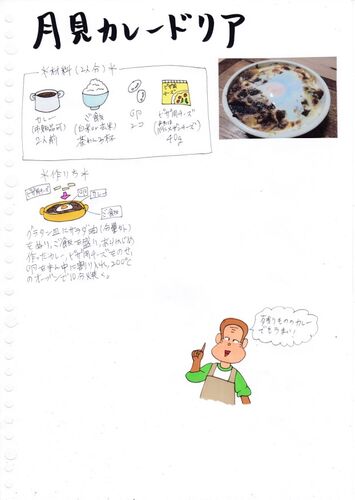 月見カレードリア
*材料(2人分)*
カレー
(市販品可)
2人前
ご飯
(白米or玄米)
茶わん2杯
卵
2コ
ピザ用チーズ
40g
*作り方*
ピザ用チーズ
卵
カレー
ご飯
グラタン皿にサラダ油(分量外)
をぬり、ご飯を盛り、あらかじめ
作ったカレー、ピザ用チーズをのせ、
卵を真ん中に割り入れ、200℃
のオーブンで10分焼く。
残りもののカレー
でもうまい